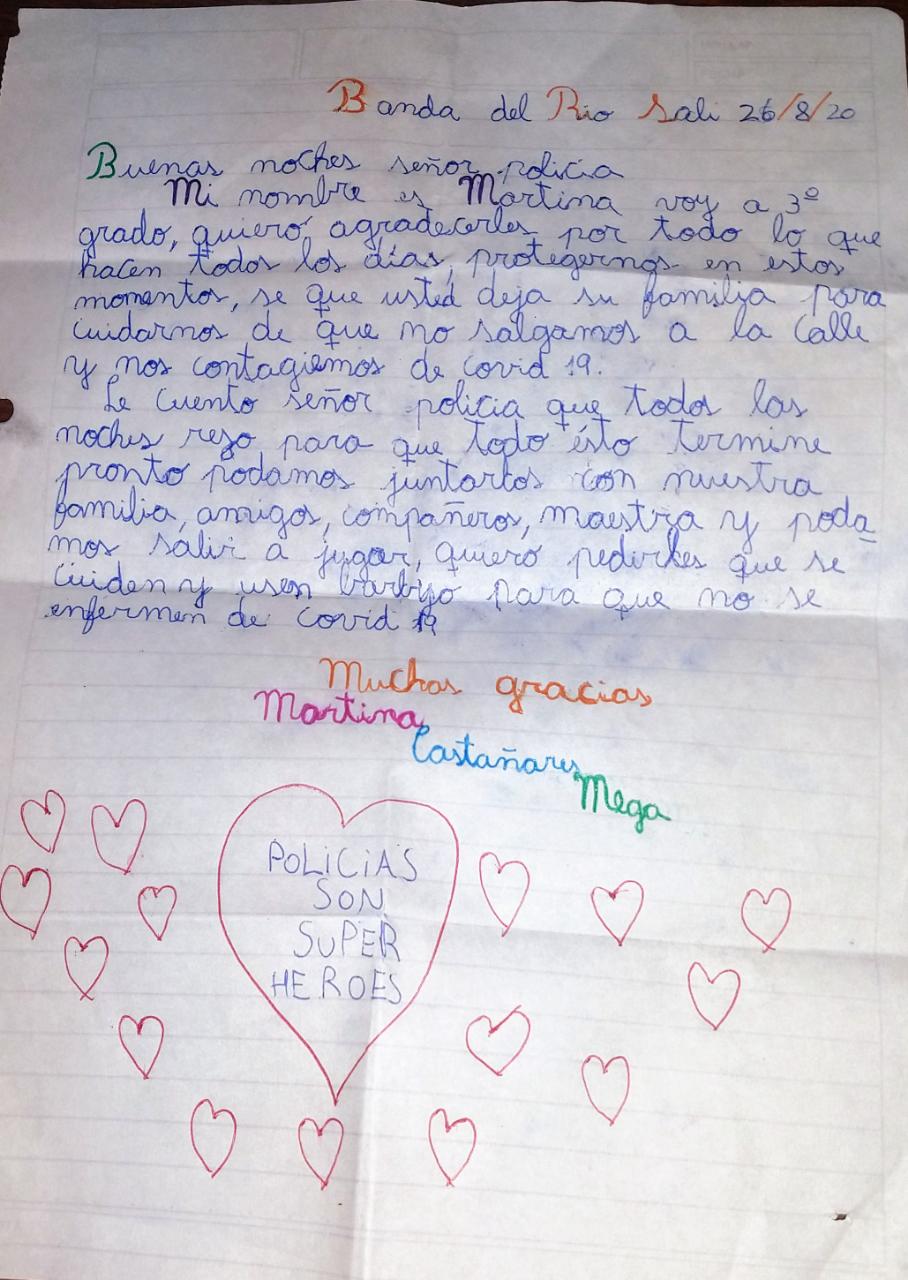 Banda del Rio Sali 26/8/20
Buenas noches señor policia
Mi nombre es Martina voy a 3º
grado, quiero agradecerles por todo lo que
hacen todos los días, protegernos en estos
momentos, se que usted deja su familia para
cuidarnos de que no salgamos a la calle
y nos contagiemos de covid 19.
Le cuento señor policia que todas las
noches reso para que todo ésto termine
pronto podamos juntarlos con nuestra
familia, amigos, compañeros, maestra y poda
mos salir a jugar, quiero pedirles que se
cuiden y usen barbijo para que no se
enfermen de covid 19
Muchas gracias
Martina
Castañares
Mega
POLICIAS
SON
SUPER
HEROES